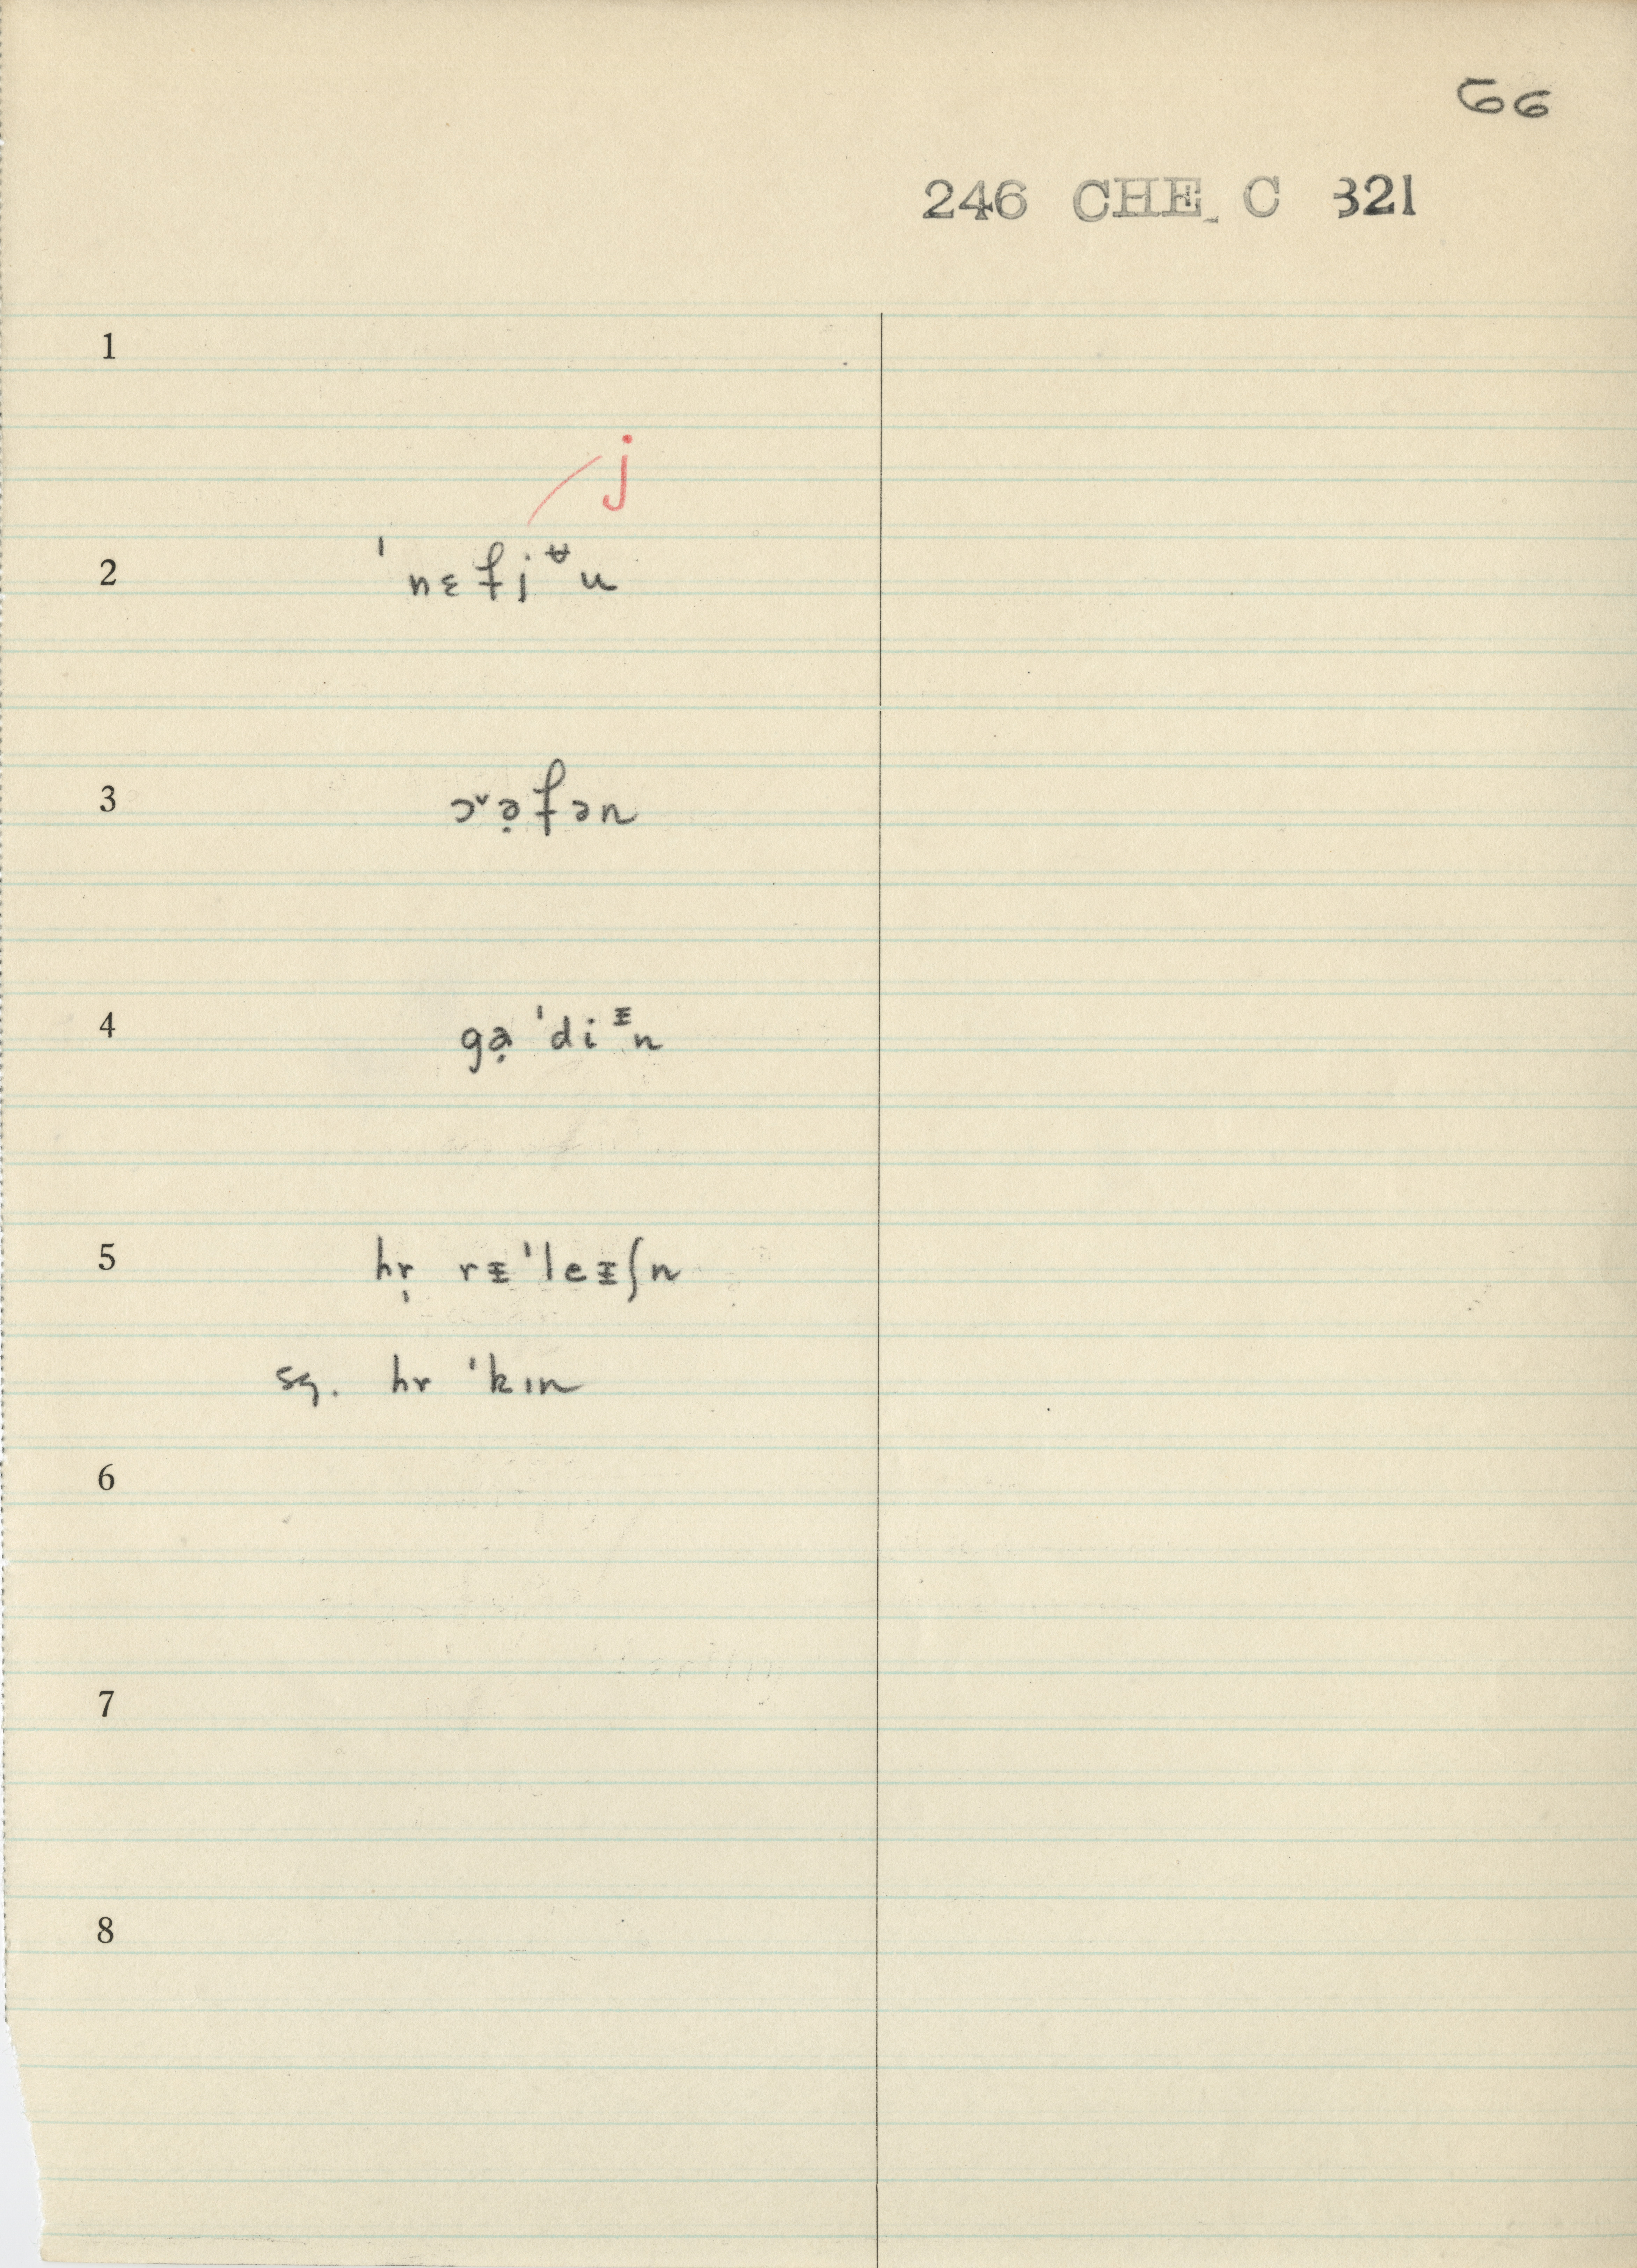 66
246 CHE C 321
1
j
2 ˈnɛfjᵾu
3 ɔ˅ə̣fən
4 gə̣ ˈdiᵻn
5 hr̩ rᵻˈleᵻʃn
sg. hr ˈkɪn
6
7
8